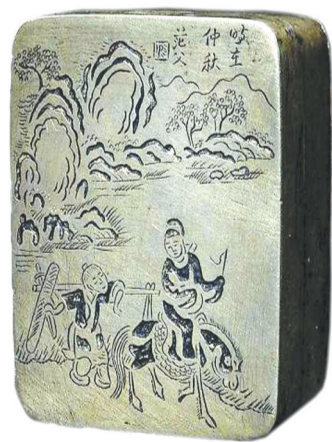 時在
仲秋
范父